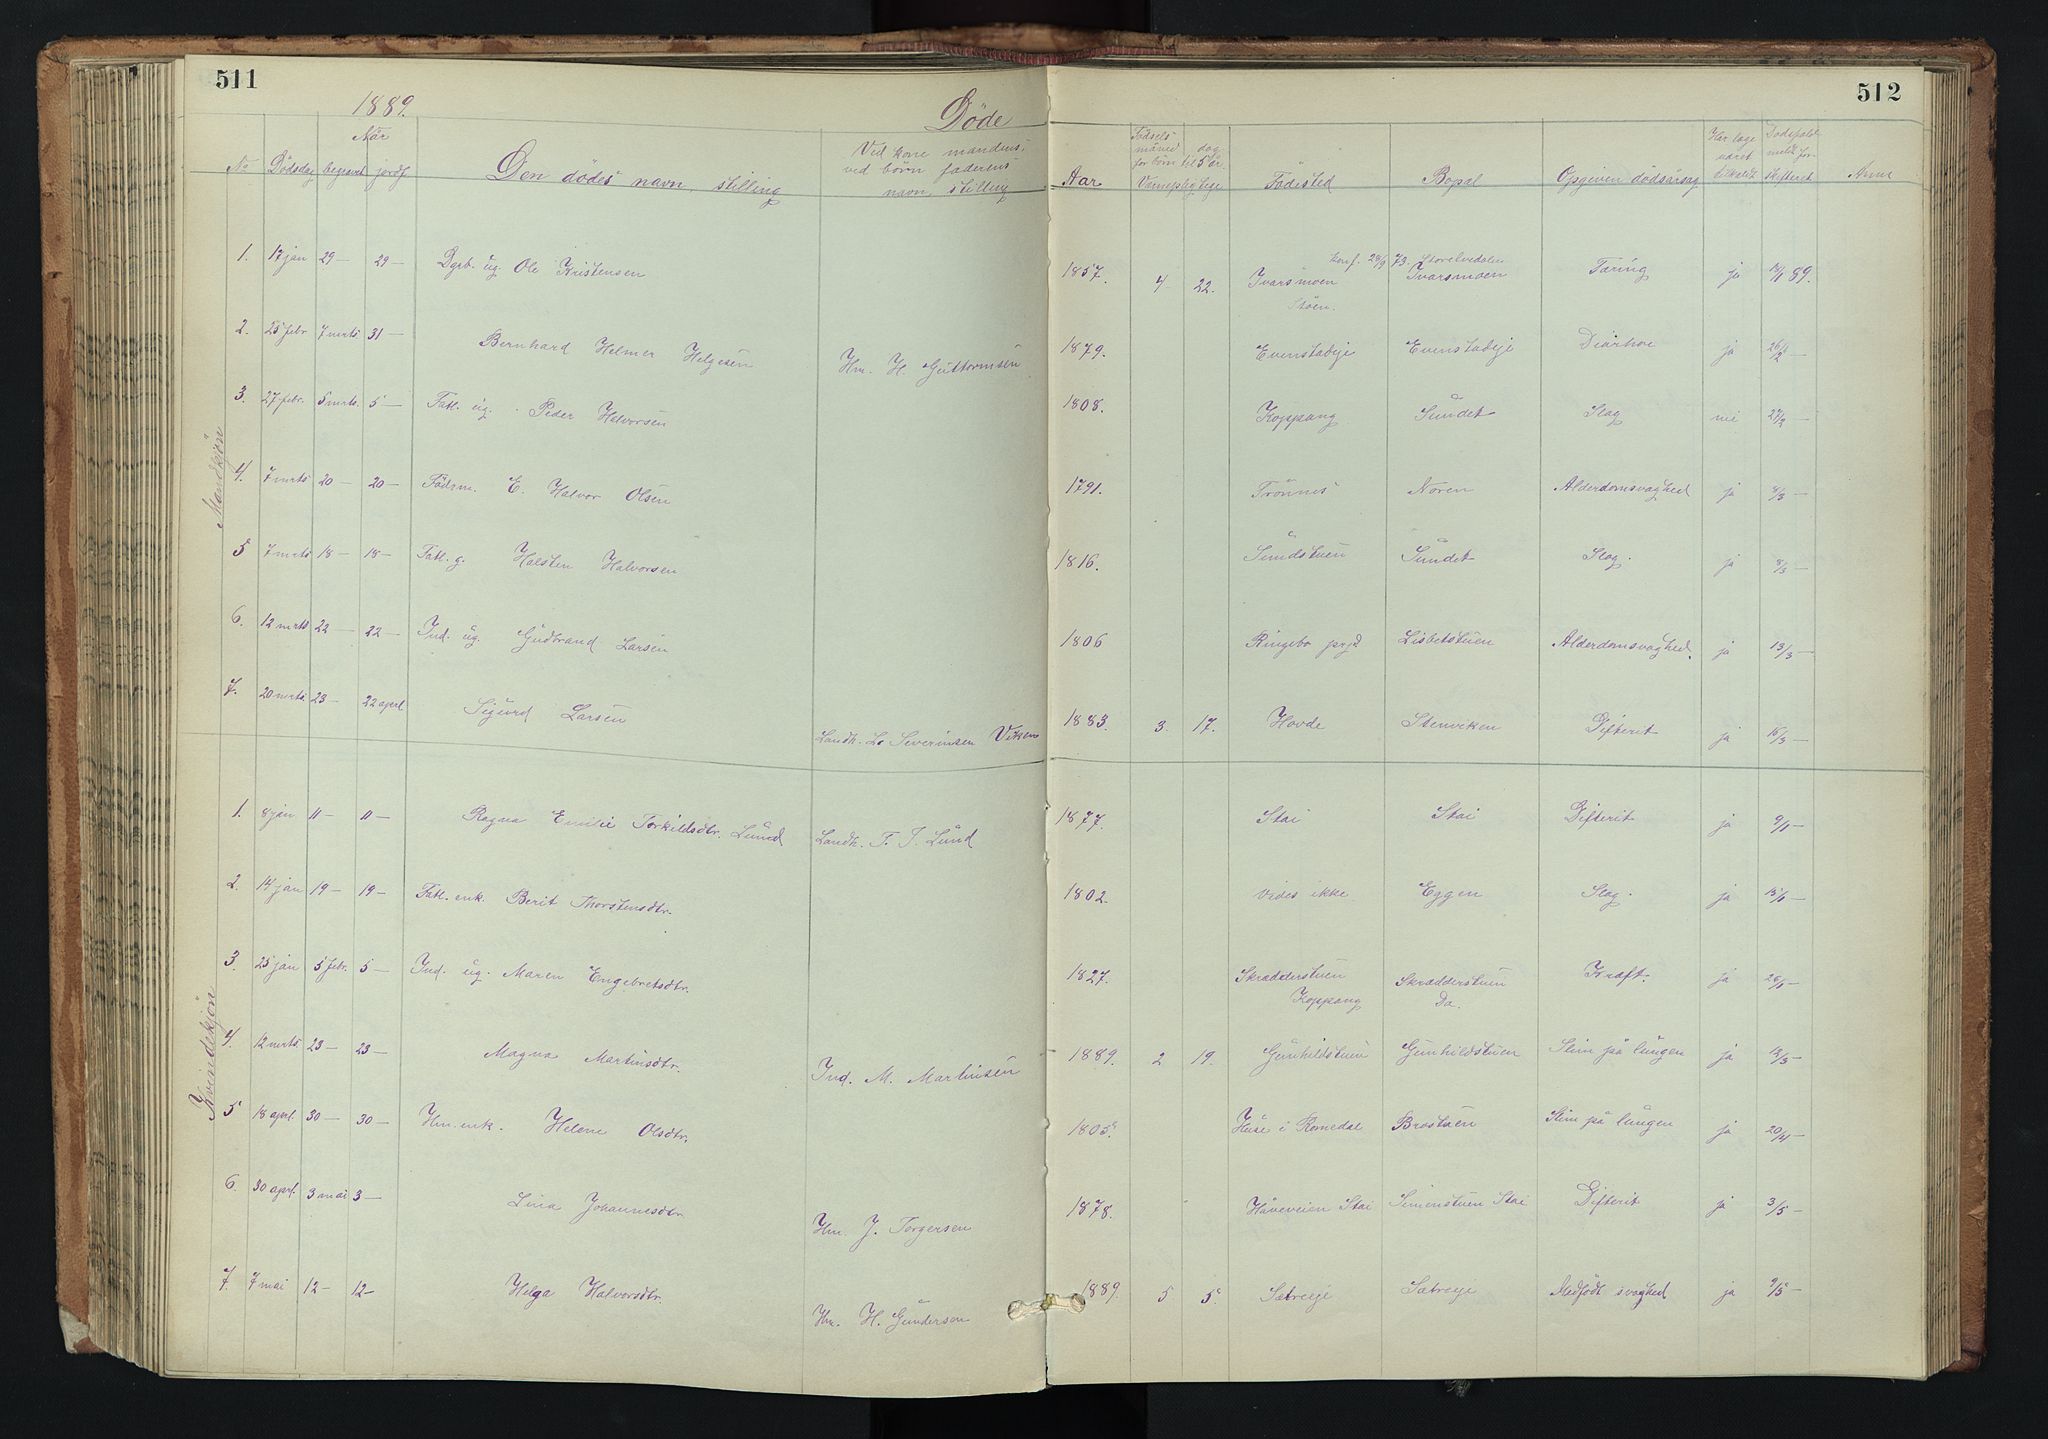 511
512
1889.
Døde
Når
No
Dödsdag
begravet
jordf
Den dødes navn, stilling
Ved kone mandens,
ved børn faderens
navn, stilling
Aar
Fødsels
måned dag
for børn til 5 år
Værnepligtige
Födested
Bopæl
Opgiven dödsårsag
Har læge
været
tilkaldt
Dødsfald
meldt for
skifteret
Anm
Mandkjön
1. 17 jan 29 — 29 — Dgrb. ug. Ole Kristensen 1857. 4 22. Ivarsmoen Stöen. konf. 28/9 73. Storelvedalen Ivarsmoen Tæring ja 18/1 89.
2. 25 febr 7 mrts 31 — Bernhard Helmer Helgesen Hm. H. Guttormsen 1879. Evenstadeje Evenstadeje Diarhoe ja 26/2 —
3. 27 febr. 5 mrts. 5 — Fatl. ug. Peder Halvorsen 1808. Koppang Sundet Slag nei 27/2 —
4. 7 mrts 20 — 20 — Födsm. E. Halvor Olsen 1791. Trönnes Noren Alderdomsvaghed ja 8/3 —
5 7 mrts 18 — 18 — Fatl. g. Halsten Halvorsen 1816. Sundstuen Sundet Slag. ja 8/3 —
6. 12 mrts 22 — 22 — Ind. ug. Gudbrand Larsen 1806 Ringebo prgd Lisbetstuen Alderdomsvaghed. ja 13/3 —
7. 20 mrts 23 — 22 aprl Sigurd Larsen Landh. L. Severinsen Viken 1883. 3. 17. Hovde Stenviken Difterit ja 16/3 —
Kvindekjön
1. 8 jan 11 — 11 — Ragna Emilie Torkildsdtr. Lund Landh. T. J. Lund 1877. Stai Stai Difterit ja 9/1 —
2. 14 jan 19 — 19 — Fatl. enk. Berit Thorstensdtr. 1802. Vides ikke Eggen Slag. ja 15/1 —
3. 25 jan 5 febr. 5 — Ind. ug. Maren Engebretsdtr. 1827. Skrædderstuen Koppang Skrædderstuen Do. Kræft. ja 26/1 —
4. 12 mrts 23 — 23 — Magna Martinsdtr. Ind. M. Martinsen 1889. 2 19. Gunhildstuen Gunhildstuen Slim på lungen ja 12/3 —
5 18 aprl 30 — 30 — Hm. enk. Helene Olsdtr. 1805. Huse i Romedal Brostuen Slim på lungen ja 20/4 —
6. 30 aprl. 3 mai 3 — Lina Johannesdtr Hm. J. Torgersen 1878. Håveveien Stai Simenstuen Stai Difterit ja 3/5 —
7. 7 mai 12 — 12 — Helga Halvorsdtr. Hm. H. Gundersen 1889. 5 5. Sætreeje Sætreeje Medfödt svaghed ja 9/5 —